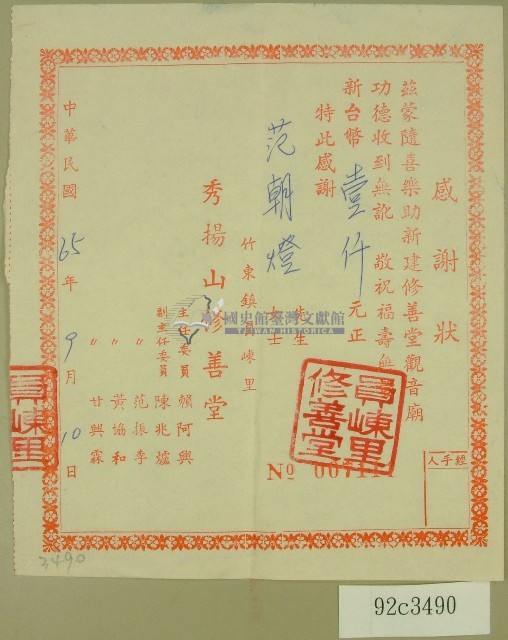 感謝狀
茲蒙隨喜樂助新建修善堂觀音廟
功德收到無訛 敬祝福壽無
新台幣 壹仟 元正
特此感謝
范朝燈 先生 女士
竹東鎮員崠里
秀揚山修善堂
主任委員 賴阿興
副主任委員 陳兆爐
〃 范振季
〃 黃協和
〃 甘興霖
中華民國 65 年 9 月 10 日
經手人
員崠里修善堂
員崠里
No
國史館臺灣文獻館
TAIWAN HISTORICA
3490
92c3490